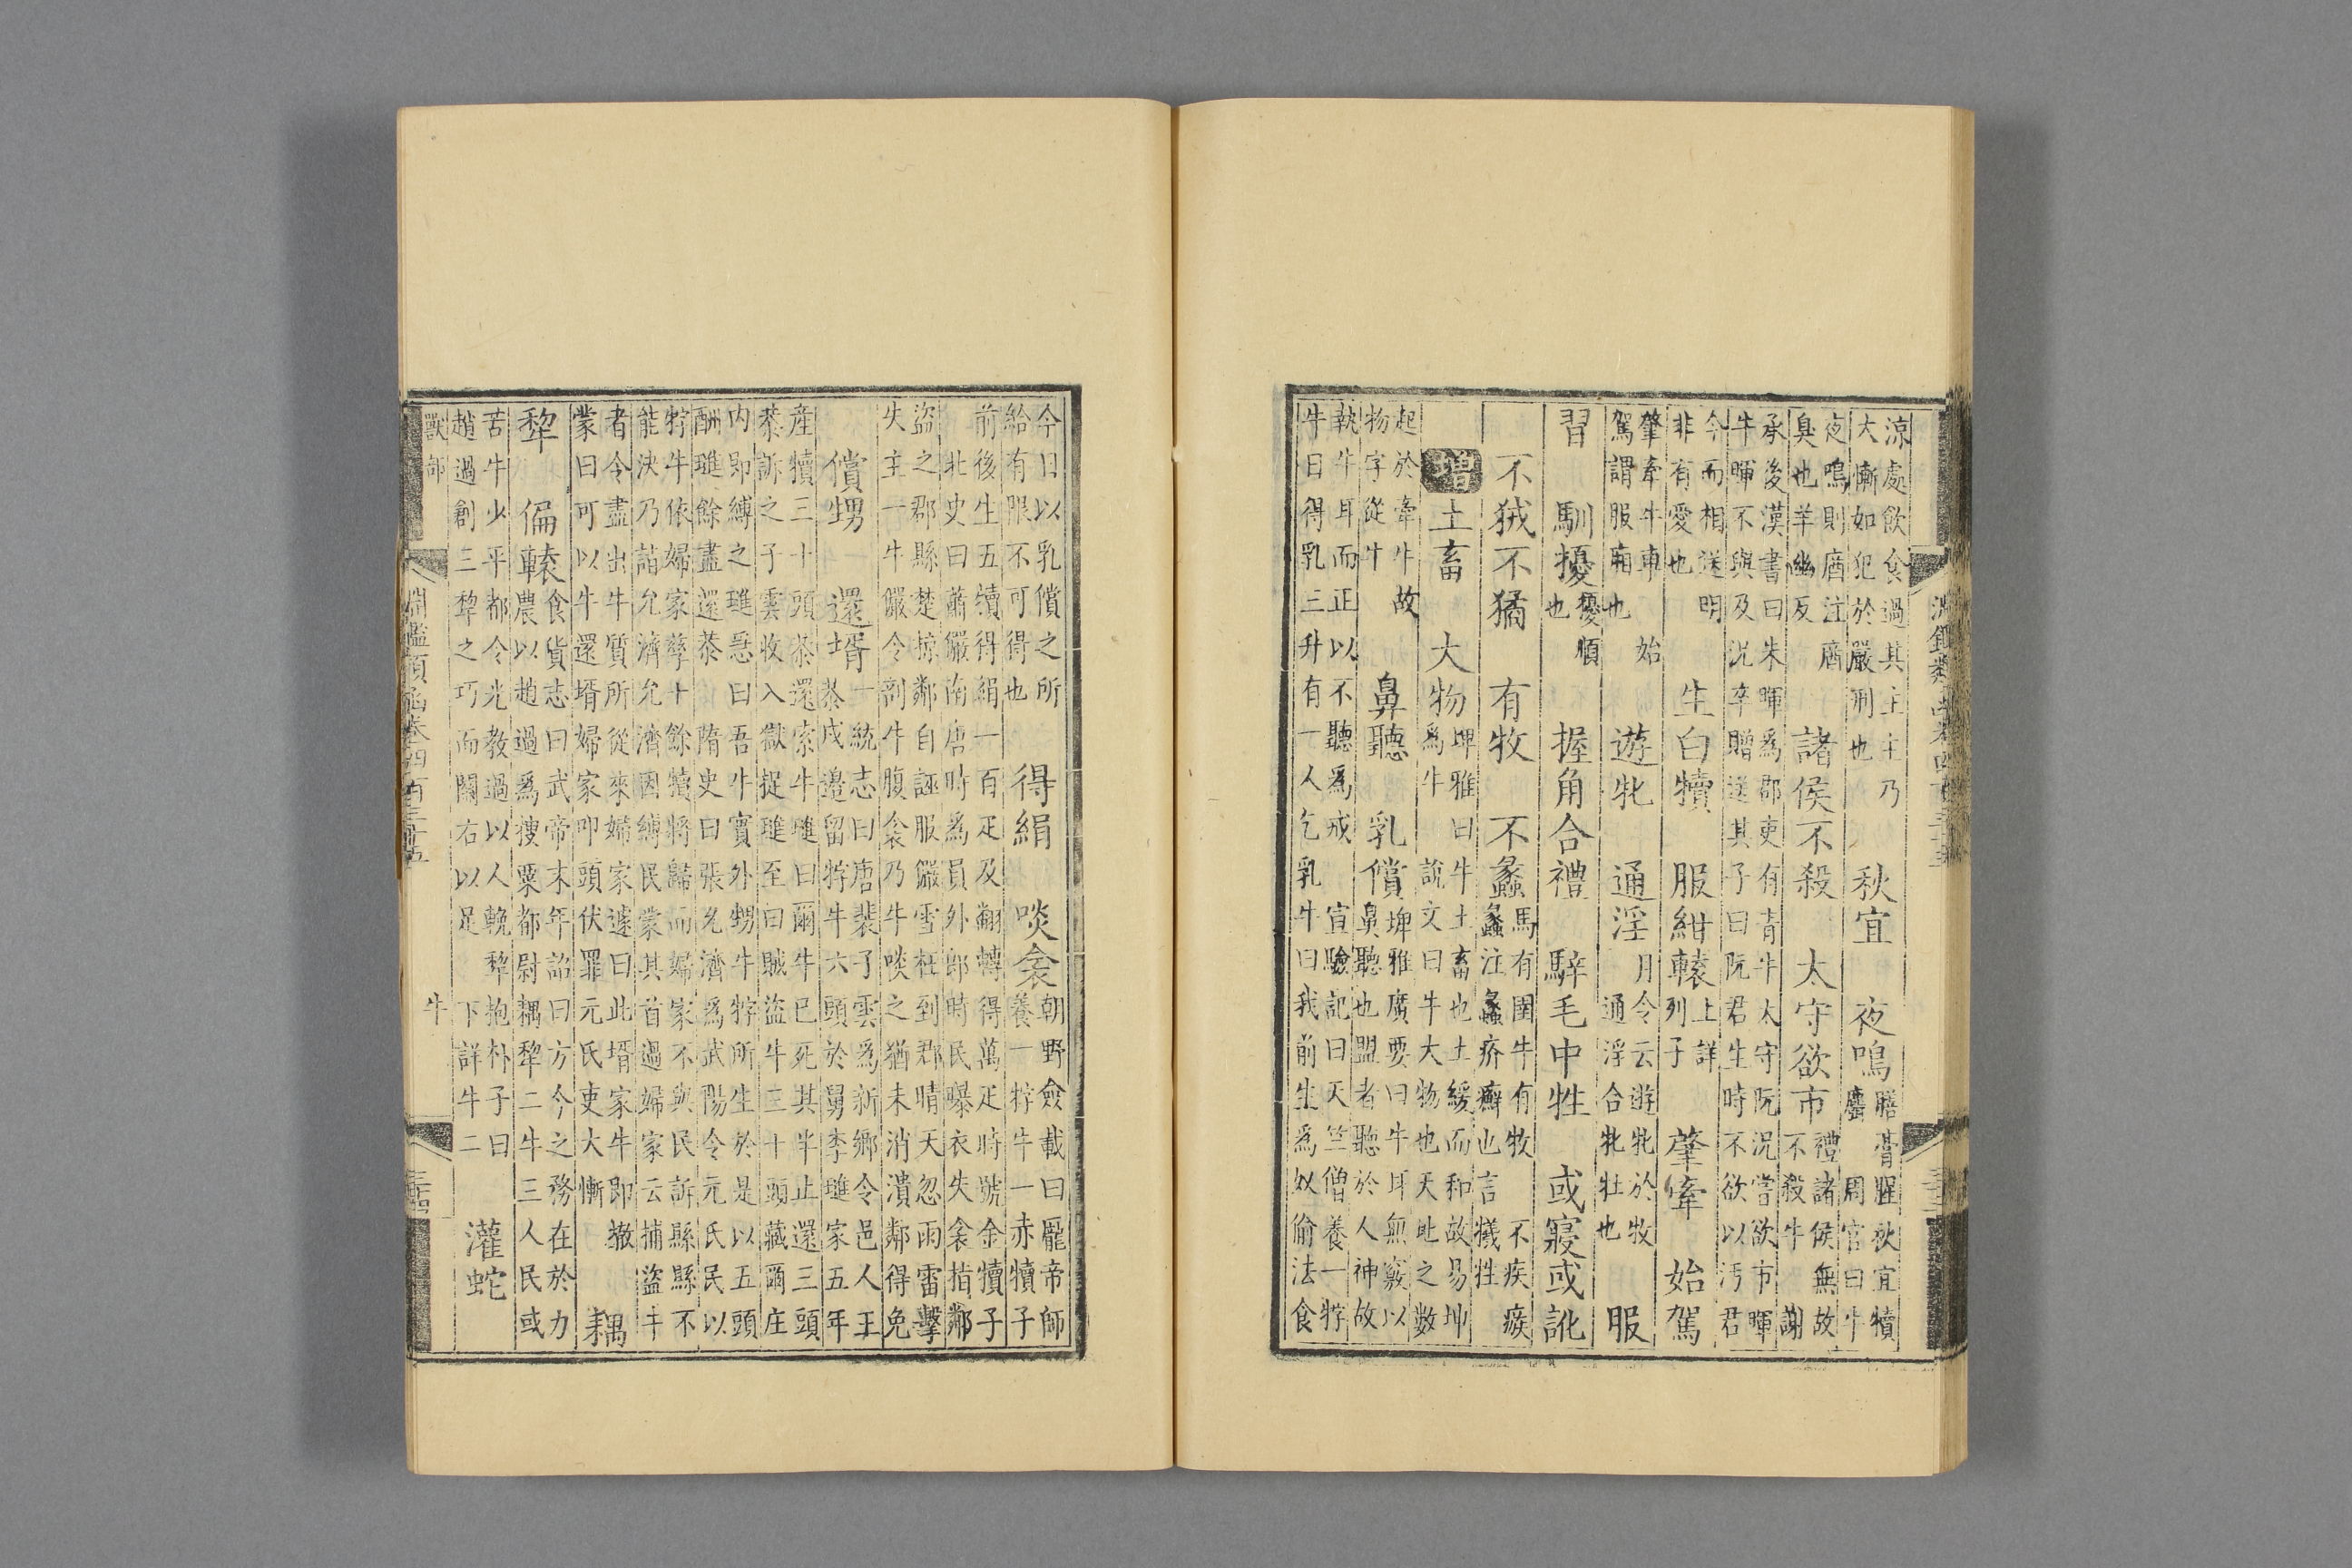 涼處飲食過其主主乃
大慚如犯於嚴刑也
秋宜　夜鳴
膳膏腥秋宜犢
麛　周官曰牛
夜鳴則庮注庮
臭也羊幽反
諸侯不殺　太守欲市
禮諸侯無故
不殺牛　謝
承後漢書曰朱暉爲郡吏有青牛太守阮況嘗欲市暉
牛暉不與及況卒贈送其子曰阮君生時不欲以汚君
今而相送明
非有愛也
生白犢　服紺轅
上詳
列子
肇牽　始駕
肇牽牛車　始
駕謂服廂也
遊牝　通淫
月令云遊牝於牧
通淫合牝牡也
服
習　馴擾
擾順
也
握角合禮　騂毛中牲　或寢或訛
不狘不獝　有牧　不蠡
馬有圉牛有牧　不疾瘯
蠡注蠡疥癬也言犧牲
增　土畜　大物
埤雅曰牛土畜也土緩而和故易坤
爲牛　說文曰牛大物也天地之數
起於牽牛故
物字從牛
鼻聽　乳償
埤雅廣要曰牛耳無竅以
鼻聽也盟者聽於人神故
執牛耳而正以不聽爲戒　宣驗記曰天竺僧養一牸
牛日得乳三升有一人乞乳牛曰我前生爲奴偷法食
今日以乳償之所
給有限不可得也
得絹　啖衾
朝野僉載曰龎帝師
養一牸牛一赤犢子
前後生五犢得絹一百疋及翻轉得萬疋時號金犢子
北史曰蕭儼南唐時爲員外郎時民曝衣失衾指鄰
盜之郡縣楚掠鄰自誣服儼雪枉到郡晴天忽雨雷擊
失主一牛儼令剖牛腹衾乃牛啖之猶未消潰鄰得免
償甥　還壻
一統志曰唐裴子雲爲新鄉令邑人王
恭戍邊留牸牛六頭於舅李璡家五年
産犢三十頭恭還索牛璡曰爾牛已死其半止還三頭
恭訴之子雲收入獄捉璡至曰賊盜牛三十頭藏爾庄
內即縛之璡急曰吾牛實外甥牛牸所生於是以五頭
酬璡餘盡還恭　隋史曰張允濟爲武陽令元氏民以
牸牛依婦家孳十餘犢將歸而婦家不與民訴縣縣不
能決乃詣允濟允濟因縛民蒙其首過婦家云捕盜牛
者令盡出牛質所從來婦家遽曰此壻家牛即撤
蒙曰可以牛還壻婦家叩頭伏罪元氏吏大慚
耦
犂　偏轅
食貨志曰武帝末年詔曰方今之務在於力
農以趙過爲搜粟都尉耦犂二牛三人民或
苦牛少平都令光教過以人輓犂　抱朴子曰
趙過創三犂之巧而關右以足　下詳牛二
灌蛇
獸部　淵鑑類函卷四百三十五　牛